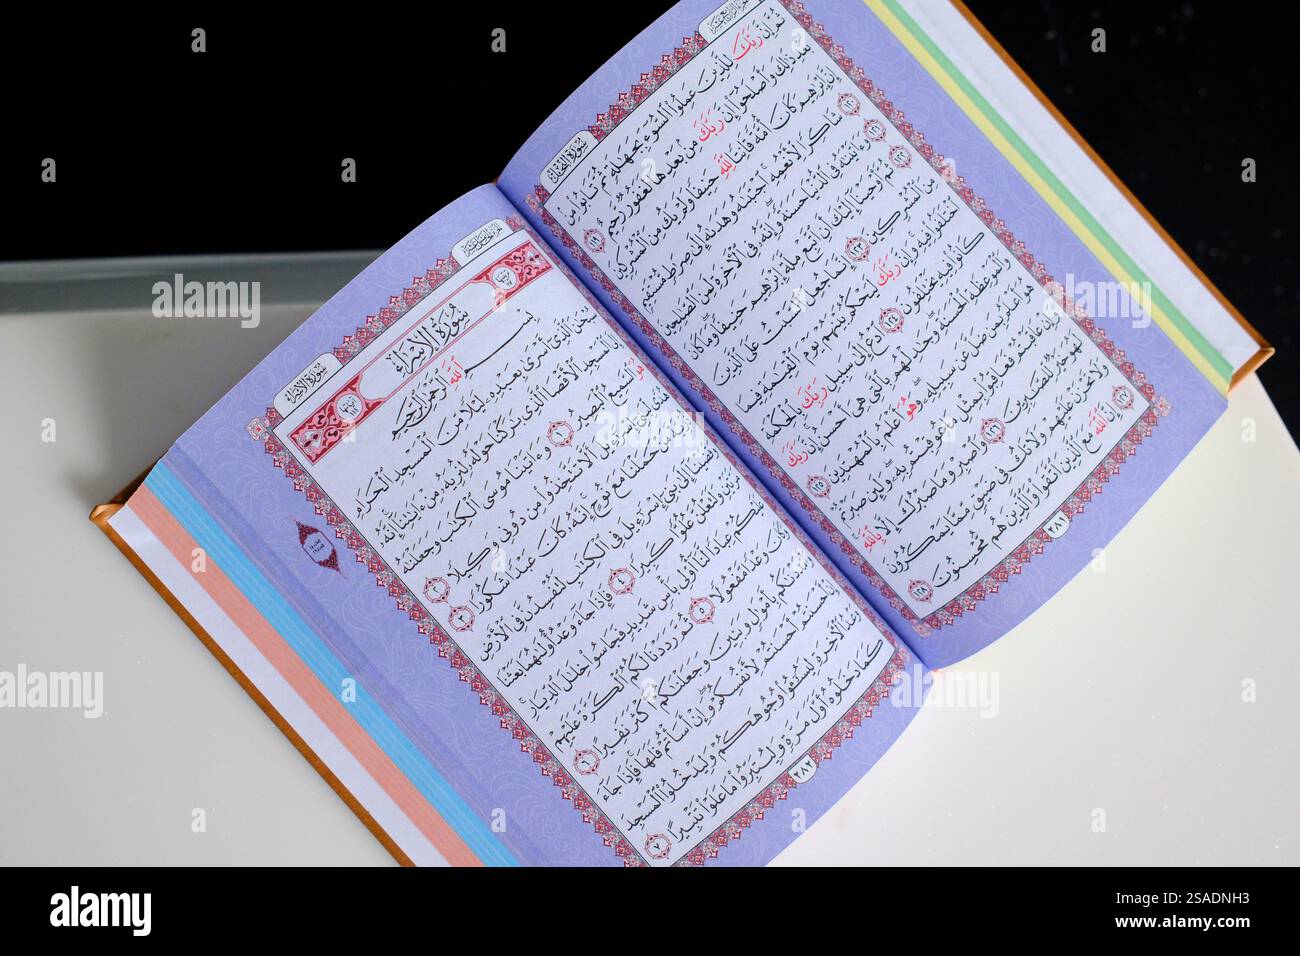 الجزء الرابع عشر
سورة النحل
ثُمَّ إِنَّ رَبَّكَ لِلَّذِينَ عَمِلُوا۟ ٱلسُّوٓءَ بِجَهَٰلَةٍ ثُمَّ تَابُوا۟ مِنۢ
بَعْدِ ذَٰلِكَ وَأَصْلَحُوٓا۟ إِنَّ رَبَّكَ مِنۢ بَعْدِهَا لَغَفُورٌ رَّحِيمٌ ١١٩
إِنَّ إِبْرَٰهِيمَ كَانَ أُمَّةً قَانِتًا لِّلَّهِ حَنِيفًا وَلَمْ يَكُ مِنَ ٱلْمُشْرِكِينَ
١٢٠ شَاكِرًا لِّأَنْعُمِهِۚ ٱجْتَبَىٰهُ وَهَدَىٰهُ إِلَىٰ صِرَٰطٍ مُّسْتَقِيمٍ
١٢١ وَءَاتَيْنَٰهُ فِى ٱلدُّنْيَا حَسَنَةً وَإِنَّهُۥ فِى ٱلْءَاخِرَةِ لَمِنَ ٱلصَّٰلِحِينَ
١٢٢ ثُمَّ أَوْحَيْنَآ إِلَيْكَ أَنِ ٱتَّبِعْ مِلَّةَ إِبْرَٰهِيمَ حَنِيفًا وَمَا كَانَ
مِنَ ٱلْمُشْرِكِينَ ١٢٣ إِنَّمَا جُعِلَ ٱلسَّبْتُ عَلَى ٱلَّذِينَ
ٱخْتَلَفُوا۟ فِيهِ وَإِنَّ رَبَّكَ لَيَحْكُمُ بَيْنَهُمْ يَوْمَ ٱلْقِيَٰمَةِ فِيمَا
كَانُوا۟ فِيهِ يَخْتَلِفُونَ ١٢٤ ٱدْعُ إِلَىٰ سَبِيلِ رَبِّكَ بِٱلْحِكْمَةِ
وَٱلْمَوْعِظَةِ ٱلْحَسَنَةِ وَجَٰدِلْهُم بِٱلَّتِى هِىَ أَحْسَنُ إِنَّ رَبَّكَ
هُوَ أَعْلَمُ بِمَن ضَلَّ عَن سَبِيلِهِۦ وَهُوَ أَعْلَمُ بِٱلْمُهْتَدِينَ ١٢٥
وَإِنْ عَاقَبْتُمْ فَعَاقِبُوا۟ بِمِثْلِ مَا عُوقِبْتُم بِهِۦ وَلَئِن صَبَرْتُمْ
لَهُوَ خَيْرٌ لِّلصَّٰبِرِينَ ١٢٦ وَٱصْبِرْ وَمَا صَبْرُكَ إِلَّا بِٱللَّهِ
وَلَا تَحْزَنْ عَلَيْهِمْ وَلَا تَكُ فِى ضَيْقٍ مِّمَّا يَمْكُرُونَ
١٢٧ إِنَّ ٱللَّهَ مَعَ ٱلَّذِينَ ٱتَّقَوا۟ وَّٱلَّذِينَ هُم مُّحْسِنُونَ ١٢٨
٢٨١
الجزء الخامس عشر
سورة الإسراء
سُورَةُ الإِسْرَاءِ
بِسْمِ ٱللَّهِ ٱلرَّحْمَٰنِ ٱلرَّحِيمِ
سُبْحَٰنَ ٱلَّذِىٓ أَسْرَىٰ بِعَبْدِهِۦ لَيْلًا مِّنَ ٱلْمَسْجِدِ ٱلْحَرَامِ
إِلَى ٱلْمَسْجِدِ ٱلْأَقْصَا ٱلَّذِى بَٰرَكْنَا حَوْلَهُۥ لِنُرِيَهُۥ مِنْ ءَايَٰتِنَآ إِنَّهُۥ
هُوَ ٱلسَّمِيعُ ٱلْبَصِيرُ ١ وَءَاتَيْنَا مُوسَى ٱلْكِتَٰبَ وَجَعَلْنَٰهُ
هُدًى لِّبَنِىٓ إِسْرَٰٓءِيلَ أَلَّا تَتَّخِذُوا۟ مِن دُونِى وَكِيلًا ٢
ذُرِّيَّةَ مَنْ حَمَلْنَا مَعَ نُوحٍ إِنَّهُۥ كَانَ عَبْدًا شَكُورًا ٣
وَقَضَيْنَآ إِلَىٰ بَنِىٓ إِسْرَٰٓءِيلَ فِى ٱلْكِتَٰبِ لَتُفْسِدُنَّ فِى ٱلْأَرْضِ
مَرَّتَيْنِ وَلَتَعْلُنَّ عُلُوًّا كَبِيرًا ٤ فَإِذَا جَآءَ وَعْدُ أُولَىٰهُمَا بَعَثْنَا
عَلَيْكُمْ عِبَادًا لَّنَآ أُو۟لِى بَأْسٍ شَدِيدٍ فَجَاسُوا۟ خِلَٰلَ ٱلدِّيَارِ
وَكَانَ وَعْدًا مَّفْعُولًا ٥ ثُمَّ رَدَدْنَا لَكُمُ ٱلْكَرَّةَ عَلَيْهِمْ
وَأَمْدَدْنَٰكُم بِأَمْوَٰلٍ وَبَنِينَ وَجَعَلْنَٰكُمْ أَكْثَرَ نَفِيرًا ٦
إِنْ أَحْسَنتُمْ أَحْسَنتُمْ لِأَنفُسِكُمْ وَإِنْ أَسَأْتُمْ فَلَهَا فَإِذَا جَآءَ
وَعْدُ ٱلْءَاخِرَةِ لِيَسُۥٓـُٔوا۟ وُجُوهَكُمْ وَلِيَدْخُلُوا۟ ٱلْمَسْجِدَ
كَمَا دَخَلُوهُ أَوَّلَ مَرَّةٍ وَلِيُتَبِّرُوا۟ مَا عَلَوْا۟ تَتْبِيرًا ٧
٢٨٢
alamy
Image ID: 2SADNH3
www.alamy.com